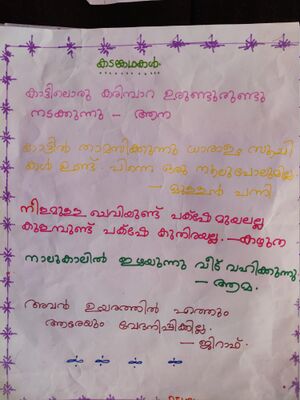 കടങ്കഥകൾ
കാട്ടിലൊരു കരിമ്പാറ ഉരുണ്ടുരുണ്ടു
നടക്കുന്നു - ആന
കാട്ടിൽ താമസിക്കുന്നു ധാരാളം സൂചി
കൾ ഉണ്ട് പിന്നെ ഒരു നൂലുപോലുമില്ല
- മുള്ളൻ പന്നി
നീളമുള്ള ചെവിയുണ്ട് പക്ഷേ മുയലല്ല
കുളമ്പുണ്ട് പക്ഷേ കുതിരയല്ല. - കഴുത
നാലുകാലിൽ ഇഴയുന്നു വീട് വഹിക്കുന്നു
- ആമ.
അവൻ ഉയരത്തിൽ എത്തും
ആരേയും വേദനിപ്പിക്കില്ല.
- ജിറാഫ്.